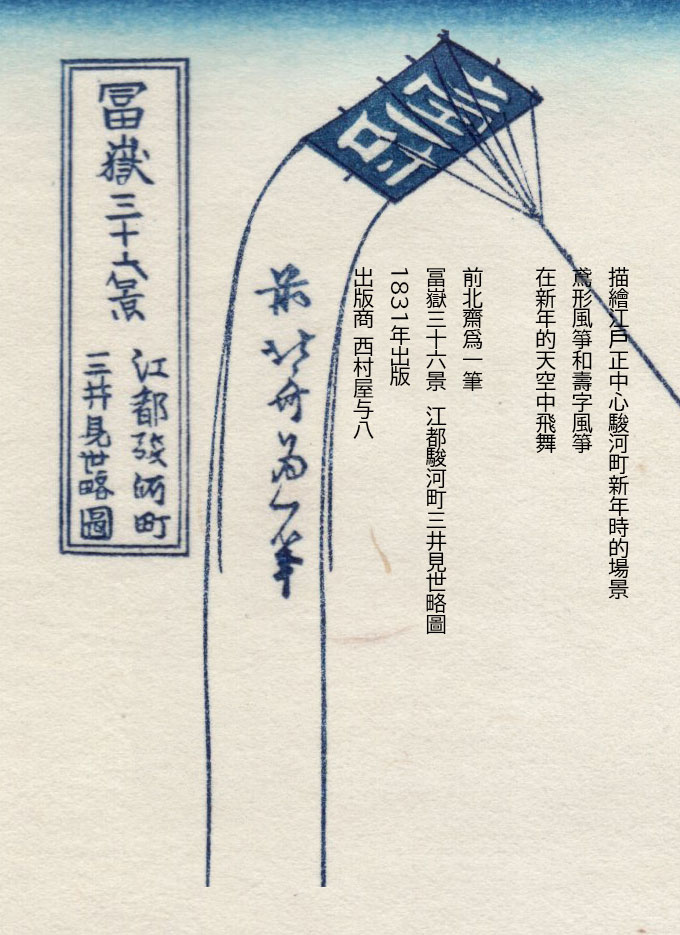 描繪江戶正中心駿河町新年時的場景
鳶形風箏和壽字風箏
在新年的天空中飛舞
前北齋爲一筆
冨嶽三十六景 江都駿河町三井見世略圖
1831年出版
出版商 西村屋与八
壽
前北斎為一筆
冨嶽三十六景
江都駿河町
三井見世略圖